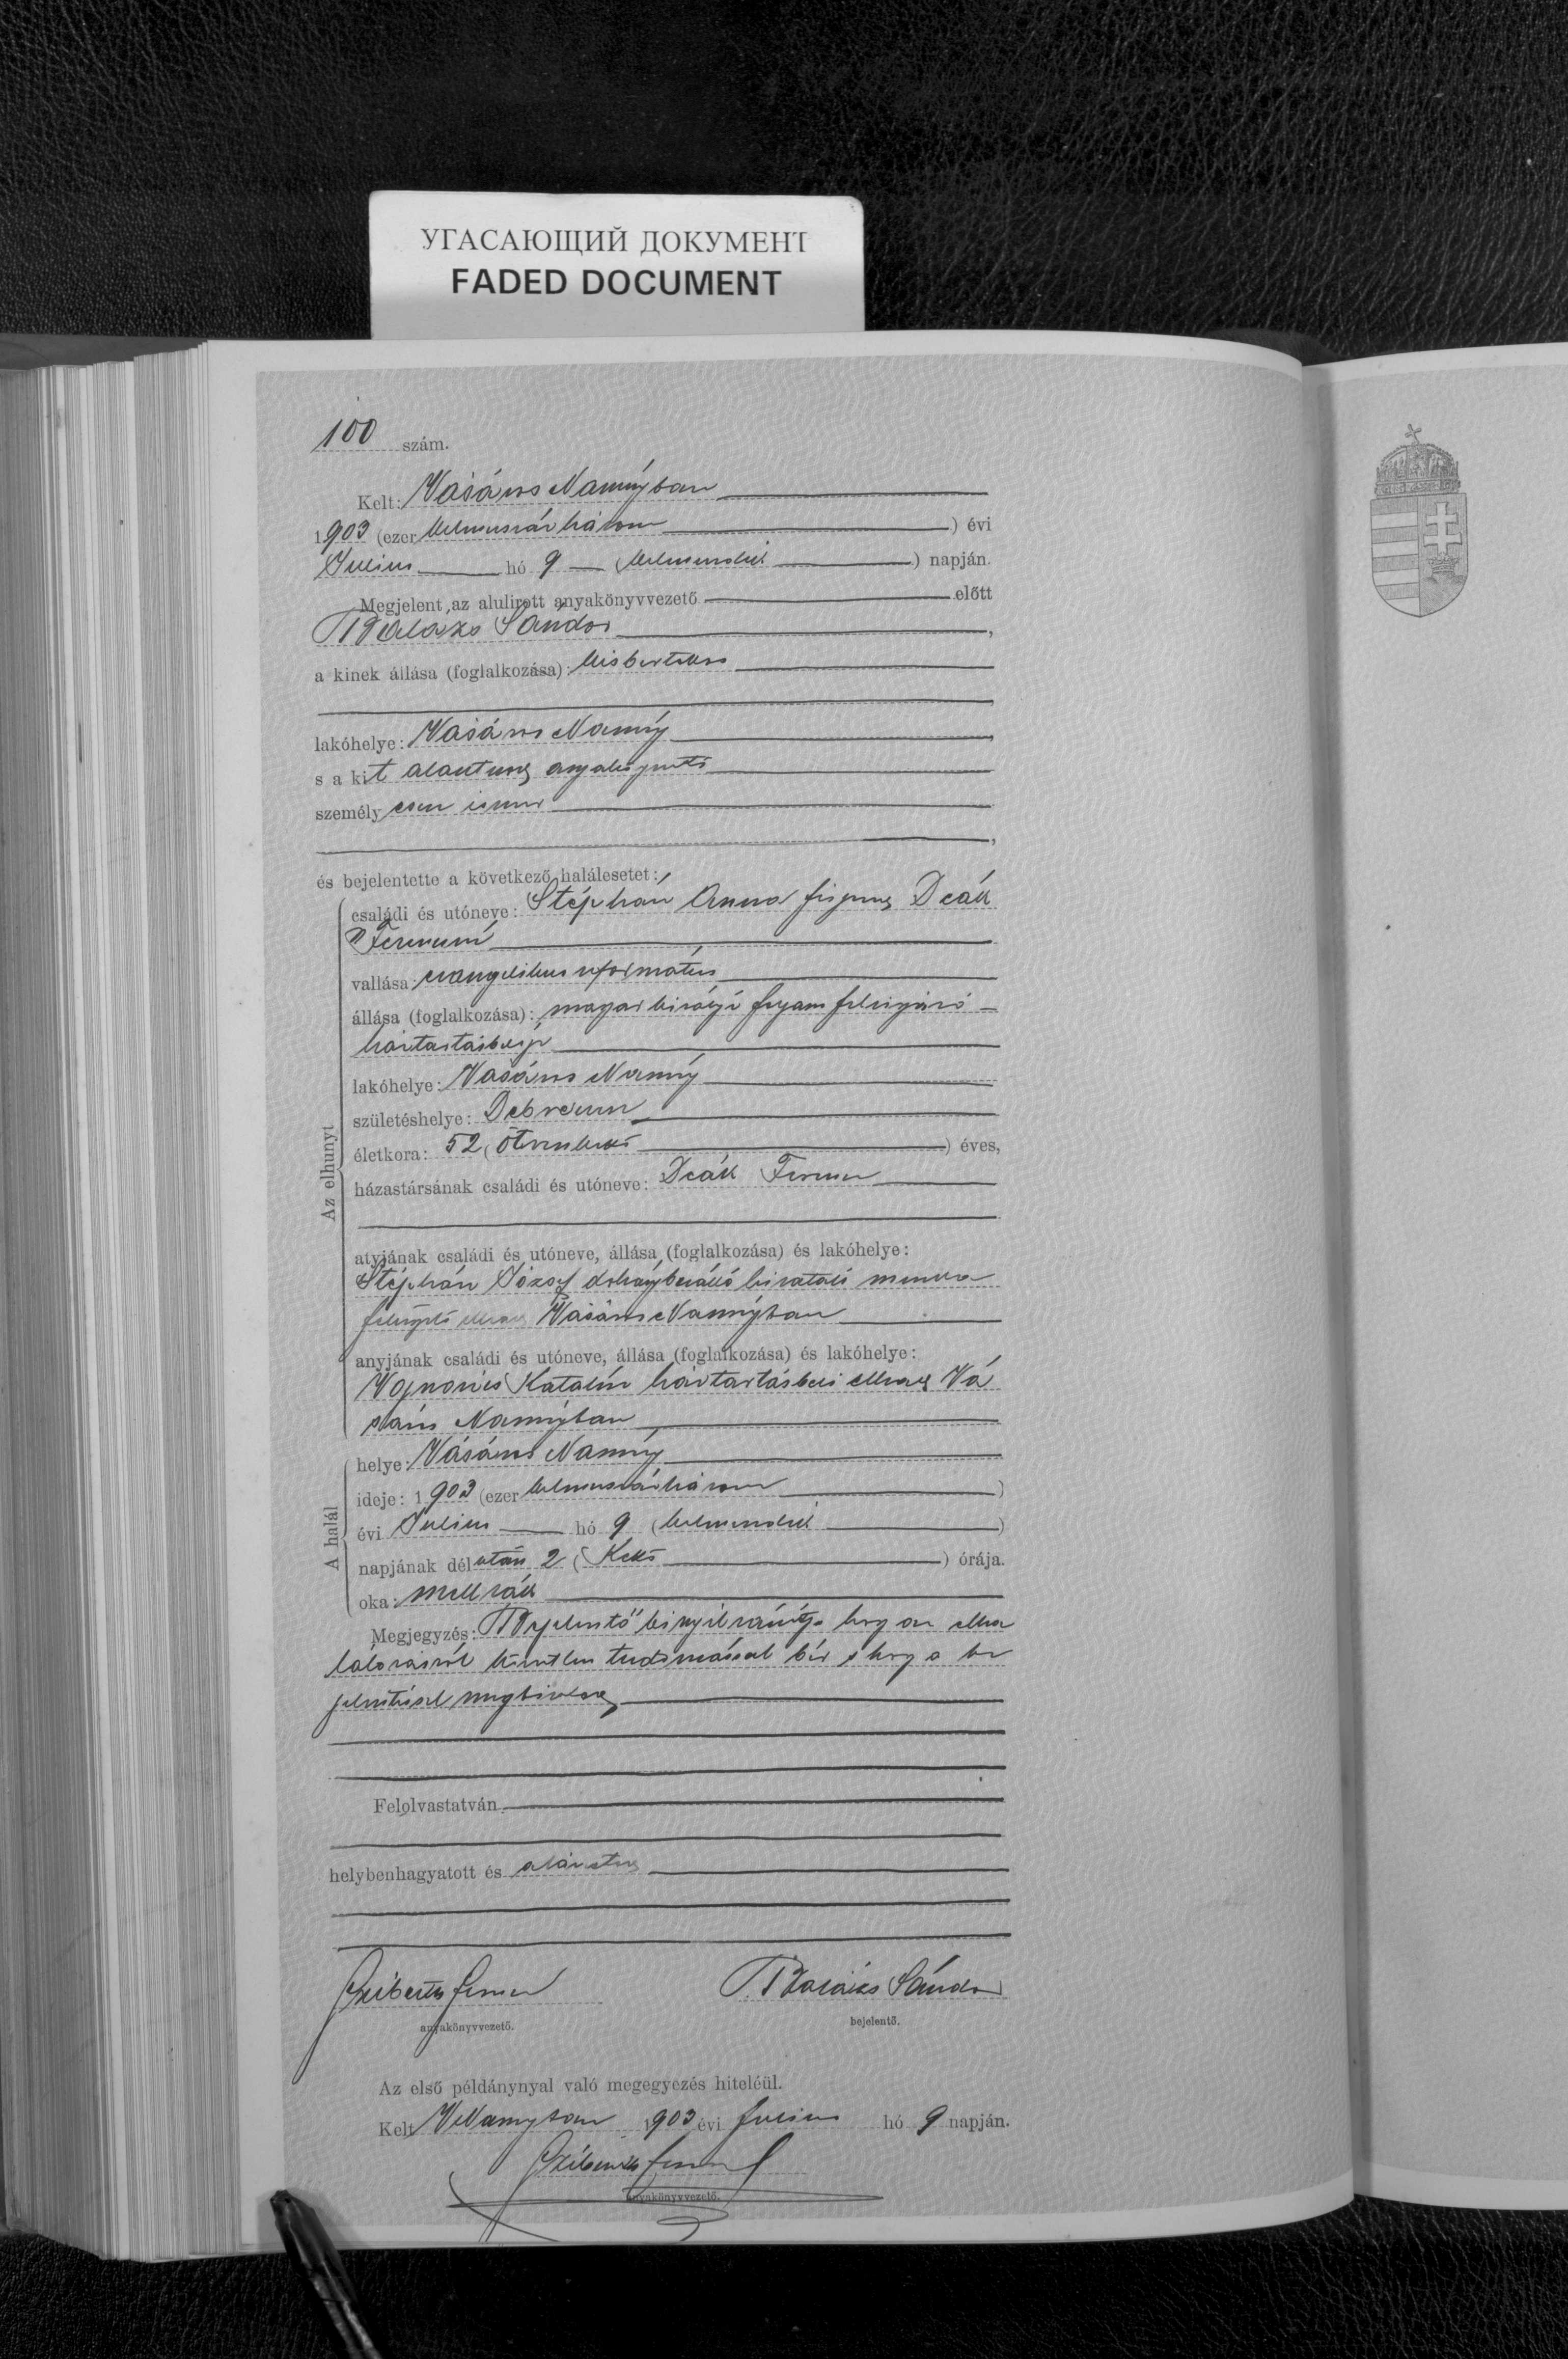 УГАСАЮЩИЙ ДОКУМЕНТ
FADED DOCUMENT
100 szám.
Kelt: Vásáros Naményban
1903 (ezer kilencszázhárom ) évi
Julius hó 9 (kilencedik ) napján.
Megjelent az alulirott anyakönyvvezető előtt
Balázs Sándor,
a kinek állása (foglalkozása): kisbirtokos
lakóhelye: Vásáros Namény
s a kit alantirott anyakönyvvezető
személyesen ismer
és bejelentette a következő halálesetet:
családi és utóneve: Stéphán Anna férjezett Deák
Ferenczné
vallása: evangelikus református
állása (foglalkozása): magyar királyi folyam felvigyázó
háztartásbeli
lakóhelye: Vásáros Namény
születéshelye: Debreczen
életkora: 52 (ötvenkettő ) éves,
házastársának családi és utóneve: Deák Ferencz
atyjának családi és utóneve, állása (foglalkozása) és lakóhelye:
Stéphán József dohánybeváltó hivatali munka
felügyelő elhalt Vásáros Naményban
anyjának családi és utóneve, állása (foglalkozása) és lakóhelye:
Katalin háztartásbeli elhalt Vá
sáros Naményban
helye: Vásáros Namény
ideje: 1903 (ezer kilencszázhárom )
évi Julius hó 9 (kilencedik )
napjának délután 2 (Kettő ) órája.
oka: mellrák
Megjegyzés: Bejelentő kinyilvánítja hogy az elha
lálozásról közvetlen tudomással bír s hogy a be
jelentéssel megbizatott
Felolvastatván
helybenhagyatott és aláiratott
Az elhunyt
A halál
Balázs Sándor
anyakönyvvezető.
bejelentő.
Az első példánynyal való megegyezés hiteléül.
Kelt VNaményban 1903 évi julius hó 9 napján.
anyakönyvvezető.